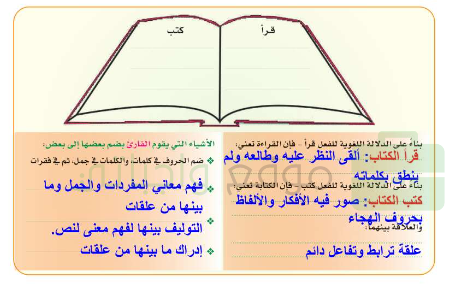 قرأ
كتب
بناءً على الدلالة اللغوية للفعل قرأ - فإن القراءة تعني:
قرأ الكتاب: ألقى النظر عليه وطالعه ولم
ينطق بكلماته
بناءً على الدلالة اللغوية للفعل كتب - فإن الكتابة تعني:
كتب الكتاب: صور فيه الأفكار والألفاظ
بحروف الهجاء
والعلاقة بينهما:
علاقة ترابط وتفاعل دائم
الأشياء التي يقوم القارئ بضم بعضها إلى بعض:
ضم الحروف في كلمات، والكلمات في جمل، ثم في فقرات
فهم معاني المفردات والجمل وما
بينها من علقات
التوليف بينها لفهم معنى لنص.
إدراك ما بينها من علقات